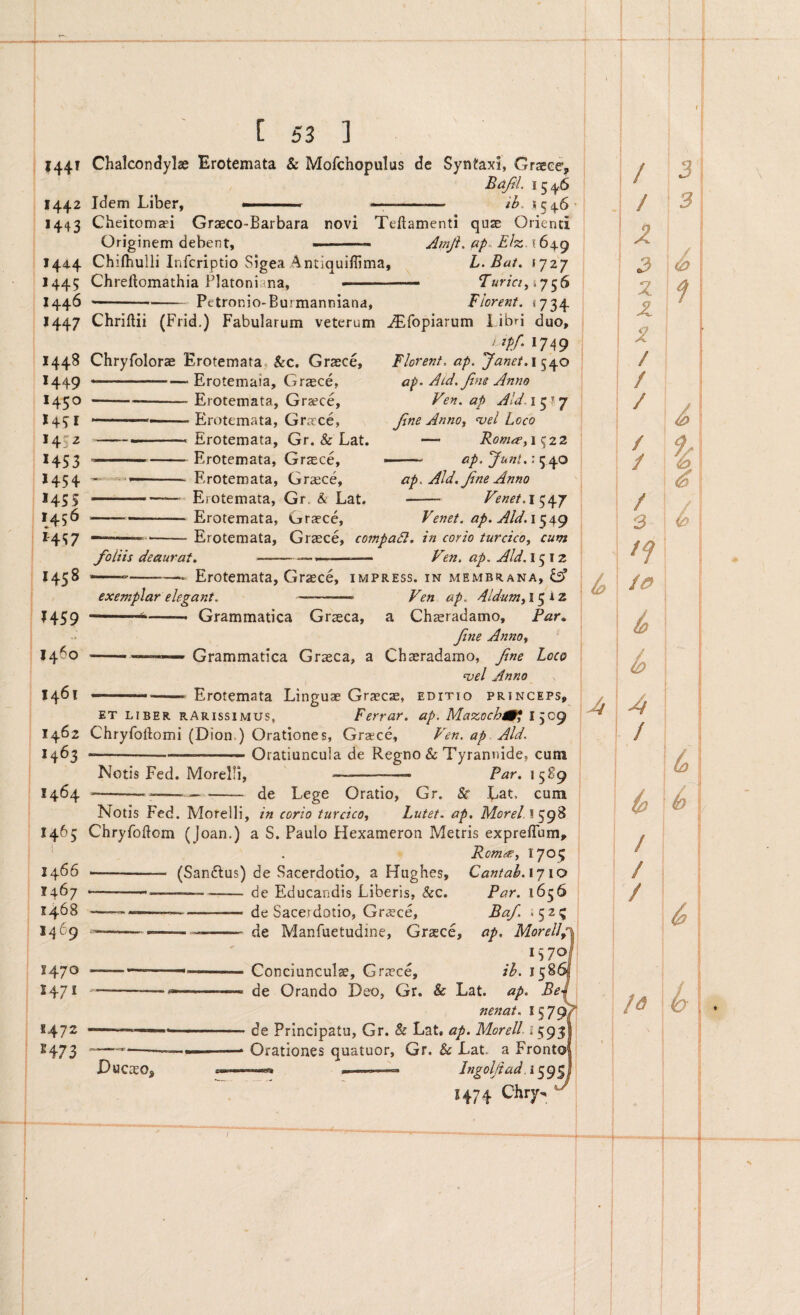 [ 53 ]
1441 Chalcondylæ Erotemata & Moſchopulus de Syntaxi, Græce,
Baſil. 1546 / 3
1442 Idem Liber, —— —— ib. 1546 / 3
1443 Cheitomæi Græco-Barbara novi Teſtamenti quæ Orienti
Originem debent, —— Amſt. ap. Elz. 1649 2
1444 Chiſhulli Inſcriptio Sigea Antiquiſſima, L. Bat. 1727 3 6
1445 Chreſtomathia Platoniana, —— Turici, 1756 2 9
1446 —— Petronio-Burmanniana, Florent. 1734 2
1447 Chriſtii (Frid.) Fabularum veterum Æſopiarum Libri duo,
Lipſ. 1749 2
1448 Chryſoloræ Erotemata, &c. Græcé, Florent. ap. Janet. 1540 /
1449 —— Erotemaia, Græcé, ap. Ald. ſine Anno /
1450 —— Erotemata, Græcé, Ven. ap Ald. 1517 /
1451 —— Erotemata, Græcé, ſine Anno, vel Loco 6
1452 —— Erotemata, Gr. & Lat. — Romæ, 1522 / 9
1453 —— Erotemata, Græcé, —— ap. Junt. 1540 / 6
1454 —— Erotemata, Græcé, ap. Ald. ſine Anno 6
1455 —— Erotemata, Gr. & Lat. —— Venet. 1547 /
1456 —— Erotemata, Græcé, Venet. ap. Ald. 1549 3 6
1457 —— Erotemata, Græcé, compact. in corio turcico, cum
foliis deaurat. —— Ven. ap. Ald. 1512 19
1458 —— Erotemata, Græcé, IMPRESS. IN MEMBRANA, &
exemplar elegant. —— Ven ap. Aldum, 1512 6 10
1459 —— Grammatica Græca, a Chæradamo, Par.
ſine Anno, 6
1460 —— Grammatica Græca, a Chæradamo, ſine Loco
vel Anno 6
1461 —— Erotemata Linguæ Græcæ, EDITIO PRINCEPS,
ET LIBER RARISSIMUS, Ferrar. ap. Mazoch 1509 4 4
1462 Chryſoſtomi (Dion.) Orationes, Græcé, Ven. ap Ald. /
1463 —— Oratiuncula de Regno & Tyrannide, cum
Notis Fed. Morelli, —— Par. 1589 6
1464 —— de Lege Oratio, Gr. & Lat. cum
Notis Fed. Morelli, in corio turcico, Lutet. ap. Morel 1598 6 6
1465 Chryſoſtom (Joan.) a S. Paulo Hexameron Metris expreſſum,
Romæ, 1705 /
1466 —— (Sanctus) de Sacerdotio, a Hughes, Cantab. 1710 /
1467 —— de Educandis Liberis, &c. Par. 1656 /
1468 —— de Sacerdotio, Græcé, Baſ. 1525 6
1469 —— de Manſuetudine, Græcé, ap. Morell,
1570
1470 —— Conciunculæ, Græcé, ib. 1586
1471 —— de Orando Deo, Gr. & Lat. ap. Be-
nenat. 1579 10 6
1472 —— de Principatu, Gr. & Lat. ap. Morell. 1593
1473 —— Orationes quatuor, Gr. & Lat. a Fronto
Ducæo, —— —— Ingolſtad. 1595
1474 Chry-